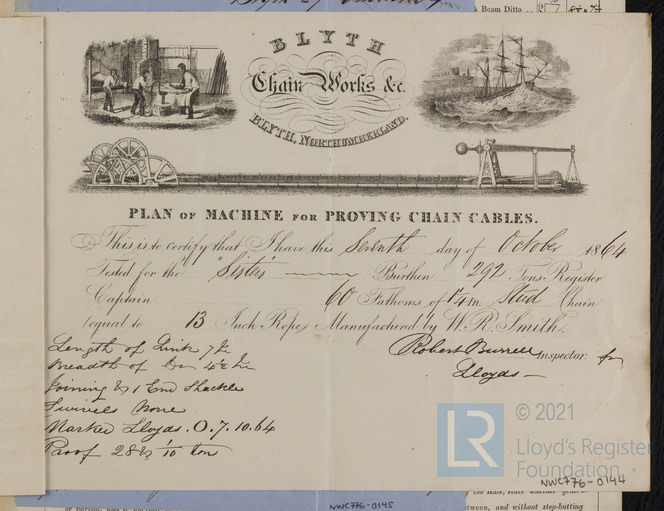 k Beam Ditto
BLYTH
Chain Works &c.
BLYTH, NORTHUMBERLAND.
PLAN OF MACHINE FOR PROVING CHAIN CABLES.
This is to certify that I have this Seventh day of October 1864
Tested for the "Sister" Burthen 292 Tons Register
Captain 60 Fathoms of Stud Chain
equal to 13 Inch Rope, Manufactured by W. R. Smith.
Robert Burrell Inspector: for
Lloyds
Length of Link 7
Breadth of Do
Joining & 1 End Shackle
Swivels None
Marked Lloyds. O. 7. 10. 64
Proof 28 10 ton
LR © 2021
Lloyd's Register
Foundation
NWC776-0144
NWC776-0145
the Rule, state whether general
between, and without step-butting